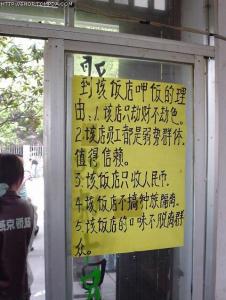 到该饭店呷饭的理
由：1.该店只劫财不劫色。
2.该店员工都是弱势群体，
值得信赖。
3.该饭店只收人民币.
4.该饭店不搞种族隔离.
5.该饭店的口味不脱离群
众。